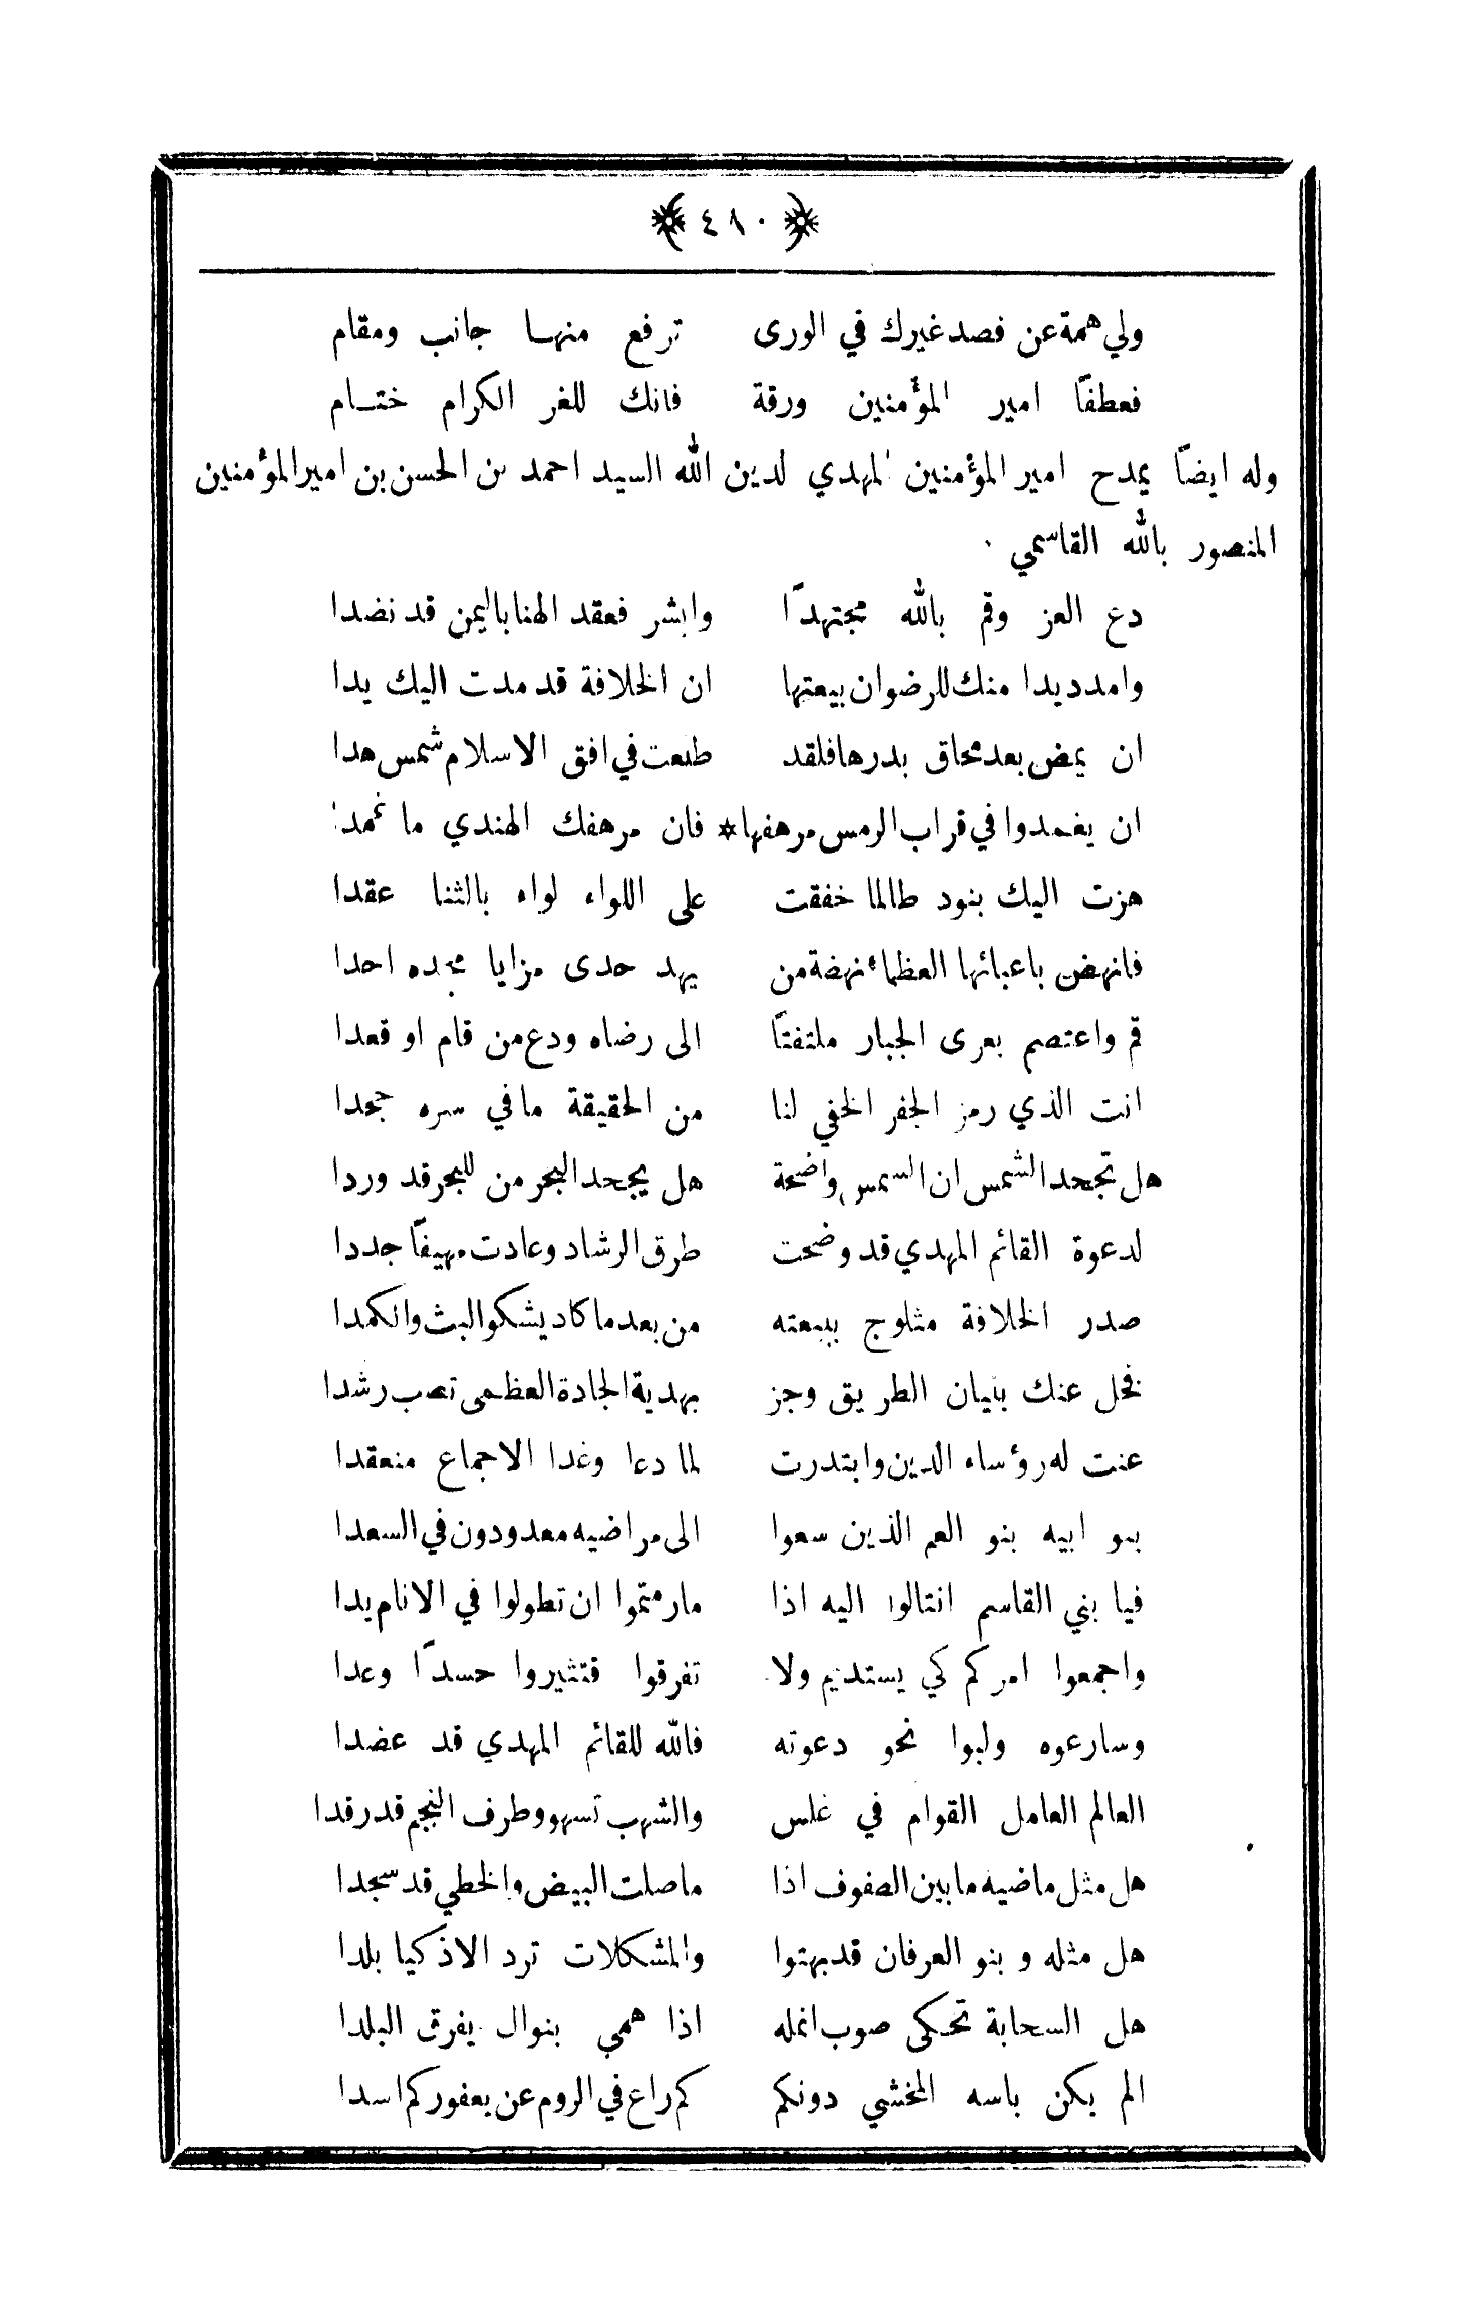 ﴿ ٤١٠ ﴾
ولي همة عن قصد غيرك في الورى ترفع منها جانب ومقام
فعطفًا امير المؤمنين ورقة فانك للغر الكرام ختام
وله ايضًا يمدح امير المؤمنين المهدي لدين الله السيد احمد بن الحسن بن امير المؤمنين
المنصور بالله القاسمي ٠
دع العز وقم بالله مجتهدًا وابشر فعقد الهنا باليمن قد نضدا
وامدد يدا منك للرضوان بيعتها ان الخلافة قد مدت اليك يدا
ان يمض بعد محاق بدرها فلقد طلعت في افق الاسلام شمس هدا
ان يغمدوا في قراب الرمس مرهفها * فان مرهفك الهندي ما غمدا
هزت اليك بنود طالما خفقت على اللواء لواء بالثنا عقدا
فانهض باعبائها العظماء نهضة من يهد حدى مزايا مجده احدا
قم واعتصم بعرى الجبار ملتفتًا الى رضاه ودع من قام او قعدا
انت الذي رمز الجفر الخفي لنا من الحقيقة ما في سره جحدا
هل تجحد الشمس ان الشمس واضحة هل يجحد البحر من للبحر قد وردا
لدعوة القائم المهدي قد وضحت طرق الرشاد وعادت مهيفًا جددا
صدر الخلافة مثلوج ببيعته من بعد ما كاد يشكو البث والكمدا
فخل عنك بنيان الطريق وجز بهدية الجادة العظمى تصب رشدا
عنت له رؤساء الدين وابتدرت لما دعا وغدا الاجماع منعقدا
بنو ابيه بنو العم الذين سعوا الى مراضيه معدودون في السعدا
فيا بني القاسم انتالوا اليه اذا ما رمتموا ان تطولوا في الانام يدا
واجمعوا امركم كي يستديم ولا تفرقوا فتثيروا حسدًا وعدا
وسارعوه ولبوا نحو دعوته فالله للقائم المهدي قد عضدا
العالم العامل القوام في غلس والشهب تسهو وطرف النجم قد رقدا
هل مثل ماضيه ما بين الصفوف اذا ما صلت البيض والخطي قد سجدا
هل مثله و بنو العرفان قد بهتوا والمشكلات ترد الاذكيا بلدا
هل السحابة تحكى صوب انمله اذا همي بنوال يفرق البلدا
الم يكن باسه المخشي دونكم كم راع في الروم عن يعفوركم اسدا